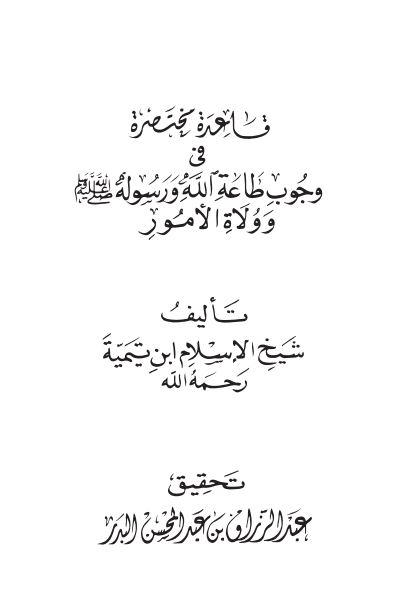 قاعدة مختصرة
في
وجوب طاعة الله ورسوله ﷺ
وولاة الأمور
تأليف
شيخ الإسلام ابن تيمية
رحمه الله
تحقيق
عبد الرزاق بن عبد المحسن البدر